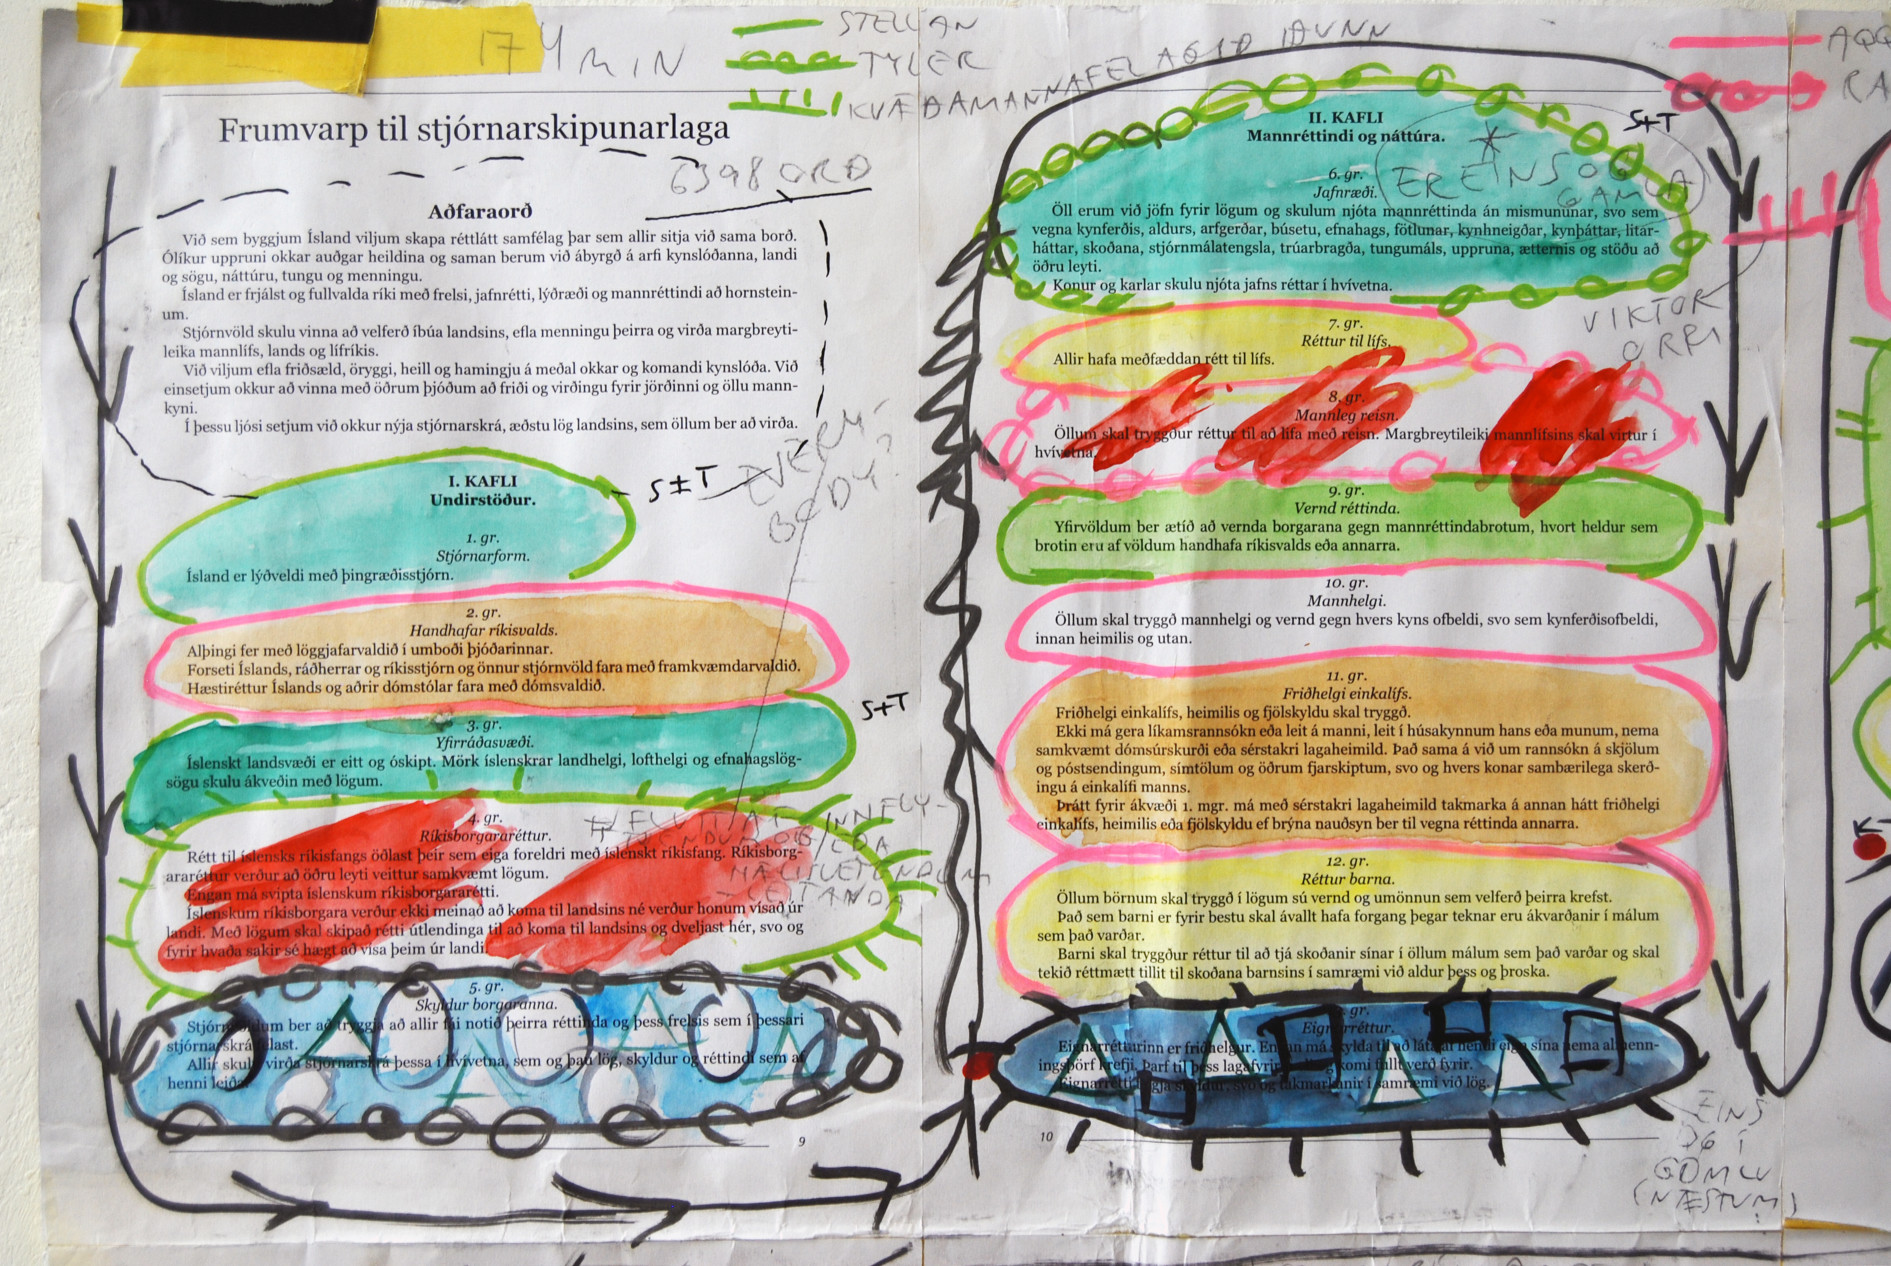 174 MIN
STELLAN
TYLER
KVÆÐAMANNAFELAGIÐ IÐUNN
RA
Frumvarp til stjórnarskipunarlaga
6398 ORÐ
Aðfaraorð
Við sem byggjum Ísland viljum skapa réttlátt samfélag þar sem allir sitja við sama borð.
Ólíkur uppruni okkar auðgar heildina og saman berum við ábyrgð á arfi kynslóðanna, landi
og sögu, náttúru, tungu og menningu.
Ísland er frjálst og fullvalda ríki með frelsi, jafnrétti, lýðræði og mannréttindi að hornstein-
um.
Stjórnvöld skulu vinna að velferð íbúa landsins, efla menningu þeirra og virða margbreyti-
leika mannlífs, lands og lífríkis.
Við viljum efla friðsæld, öryggi, heill og hamingju á meðal okkar og komandi kynslóða. Við
einsetjum okkur að vinna með öðrum þjóðum að friði og virðingu fyrir jörðinni og öllu mann-
kyni.
Í þessu ljósi setjum við okkur nýja stjórnarskrá, æðstu lög landsins, sem öllum ber að virða.
I. KAFLI
Undirstöður.
S+T
EVERY
BODY?
1. gr.
Stjórnarform.
Ísland er lýðveldi með þingræðisstjórn.
2. gr.
Handhafar ríkisvalds.
Alþingi fer með löggjafarvaldið í umboði þjóðarinnar.
Forseti Íslands, ráðherrar og ríkisstjórn og önnur stjórnvöld fara með framkvæmdarvaldið.
Hæstiréttur Íslands og aðrir dómstólar fara með dómsvaldið.
S+T
3. gr.
Yfirráðasvæði.
Íslenskt landsvæði er eitt og óskipt. Mörk íslenskrar landhelgi, lofthelgi og efnahagslög-
sögu skulu ákveðin með lögum.
4. gr.
Ríkisborgararéttur.
Rétt til íslensks ríkisfangs öðlast þeir sem eiga foreldri með íslenskt ríkisfang. Ríkisborg-
araréttur verður að öðru leyti veittur samkvæmt lögum.
Engan má svipta íslenskum ríkisborgararétti.
Íslenskum ríkisborgara verður ekki meinað að koma til landsins né verður honum vísað úr
landi. Með lögum skal skipað rétti útlendinga til að koma til landsins og dveljast hér, svo og
fyrir hvaða sakir sé hægt að vísa þeim úr landi.
5. gr.
Skyldur borgaranna.
Stjórnvöldum ber að tryggja að allir fái notið þeirra réttinda og þess frelsis sem í þessari
stjórnarskrá felast.
Allir skulu virða stjórnarskrá þessa í hvívetna, sem og þau lög, skyldur og réttindi sem af
henni leiða.
9
II. KAFLI
Mannréttindi og náttúra.
S+T
ER EINS OG
GAMLA
6. gr.
Jafnræði.
Öll erum við jöfn fyrir lögum og skulum njóta mannréttinda án mismununar, svo sem
vegna kynferðis, aldurs, arfgerðar, búsetu, efnahags, fötlunar, kynhneigðar, kynþáttar, litar-
háttar, skoðana, stjórnmálatengsla, trúarbragða, tungumáls, uppruna, ætternis og stöðu að
öðru leyti.
Konur og karlar skulu njóta jafns réttar í hvívetna.
VIKTOR
ORRI
7. gr.
Réttur til lífs.
Allir hafa meðfæddan rétt til lífs.
8. gr.
Mannleg reisn.
Öllum skal tryggður réttur til að lifa með reisn. Margbreytileiki mannlífsins skal virtur í
hvívetna.
9. gr.
Vernd réttinda.
Yfirvöldum ber ætíð að vernda borgarana gegn mannréttindabrotum, hvort heldur sem
brotin eru af völdum handhafa ríkisvalds eða annarra.
10. gr.
Mannhelgi.
Öllum skal tryggð mannhelgi og vernd gegn hvers kyns ofbeldi, svo sem kynferðisofbeldi,
innan heimilis og utan.
11. gr.
Friðhelgi einkalífs.
Friðhelgi einkalífs, heimilis og fjölskyldu skal tryggð.
Ekki má gera líkamsrannsókn eða leit á manni, leit í húsakynnum hans eða munum, nema
samkvæmt dómsúrskurði eða sérstakri lagaheimild. Það sama á við um rannsókn á skjölum
og póstsendingum, símtölum og öðrum fjarskiptum, svo og hvers konar sambærilega skerð-
ingu á einkalífi manns.
Þrátt fyrir ákvæði 1. mgr. má með sérstakri lagaheimild takmarka á annan hátt friðhelgi
einkalífs, heimilis eða fjölskyldu ef brýna nauðsyn ber til vegna réttinda annarra.
12. gr.
Réttur barna.
Öllum börnum skal tryggð í lögum sú vernd og umönnun sem velferð þeirra krefst.
Það sem barni er fyrir bestu skal ávallt hafa forgang þegar teknar eru ákvarðanir í málum
sem það varðar.
Barni skal tryggður réttur til að tjá skoðanir sínar í öllum málum sem það varðar og skal
tekið réttmætt tillit til skoðana barnsins í samræmi við aldur þess og þroska.
gr.
Eignarréttur.
Eignarrétturinn er friðhelgur. Engan má skylda til að láta af hendi eign sína nema almenn-
ingsþörf krefji. Þarf til þess lagafyrirmæli og komi fullt verð fyrir.
Eignarrétti fylgja skyldur, svo og takmarkanir í samræmi við lög.
10
EINS
OG Í
GÖMLU
(NÆSTUM)